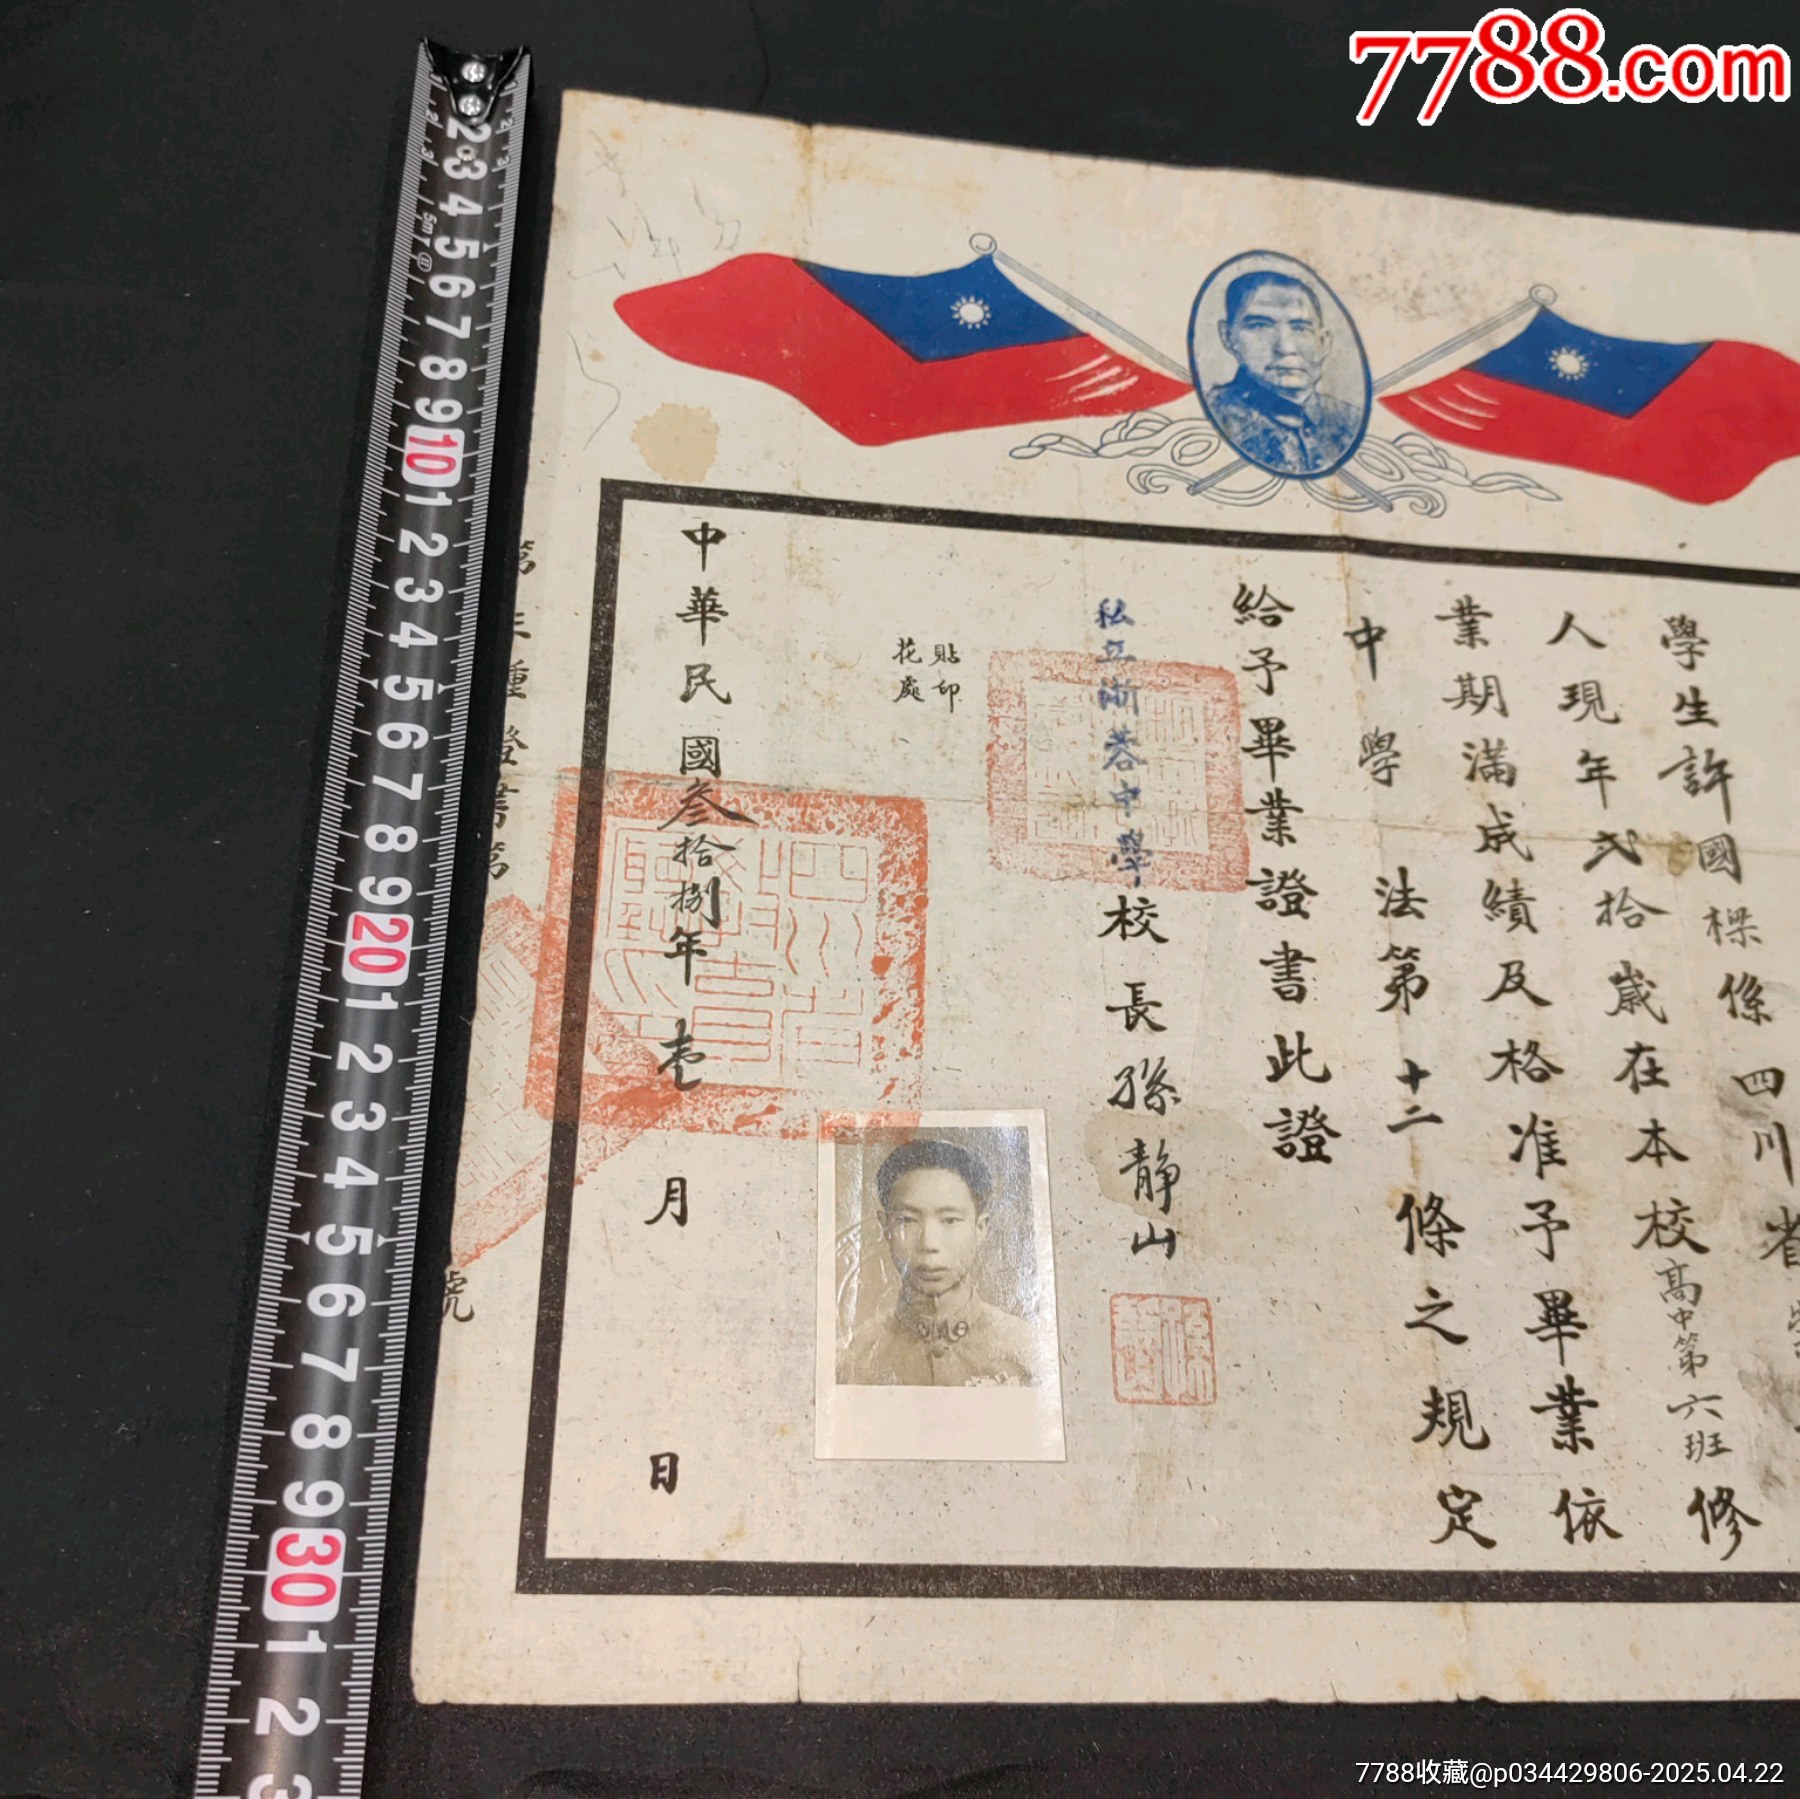 7788.com
學生許國樑係四川省
人現年弍拾歲在本校高中第六班修
業期滿成績及格准予畢業依
中學法第十二條之規定
給予畢業證書此證
私立浙蓉中學校長孫靜山
貼印
花處
中華民國叁拾捌年壹月日
種證書第
號
7788收藏@p034429806-2025.04.22